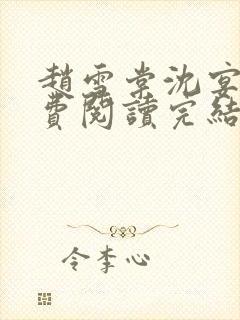 趙雪棠沈宴
費閱讀完結
令李心